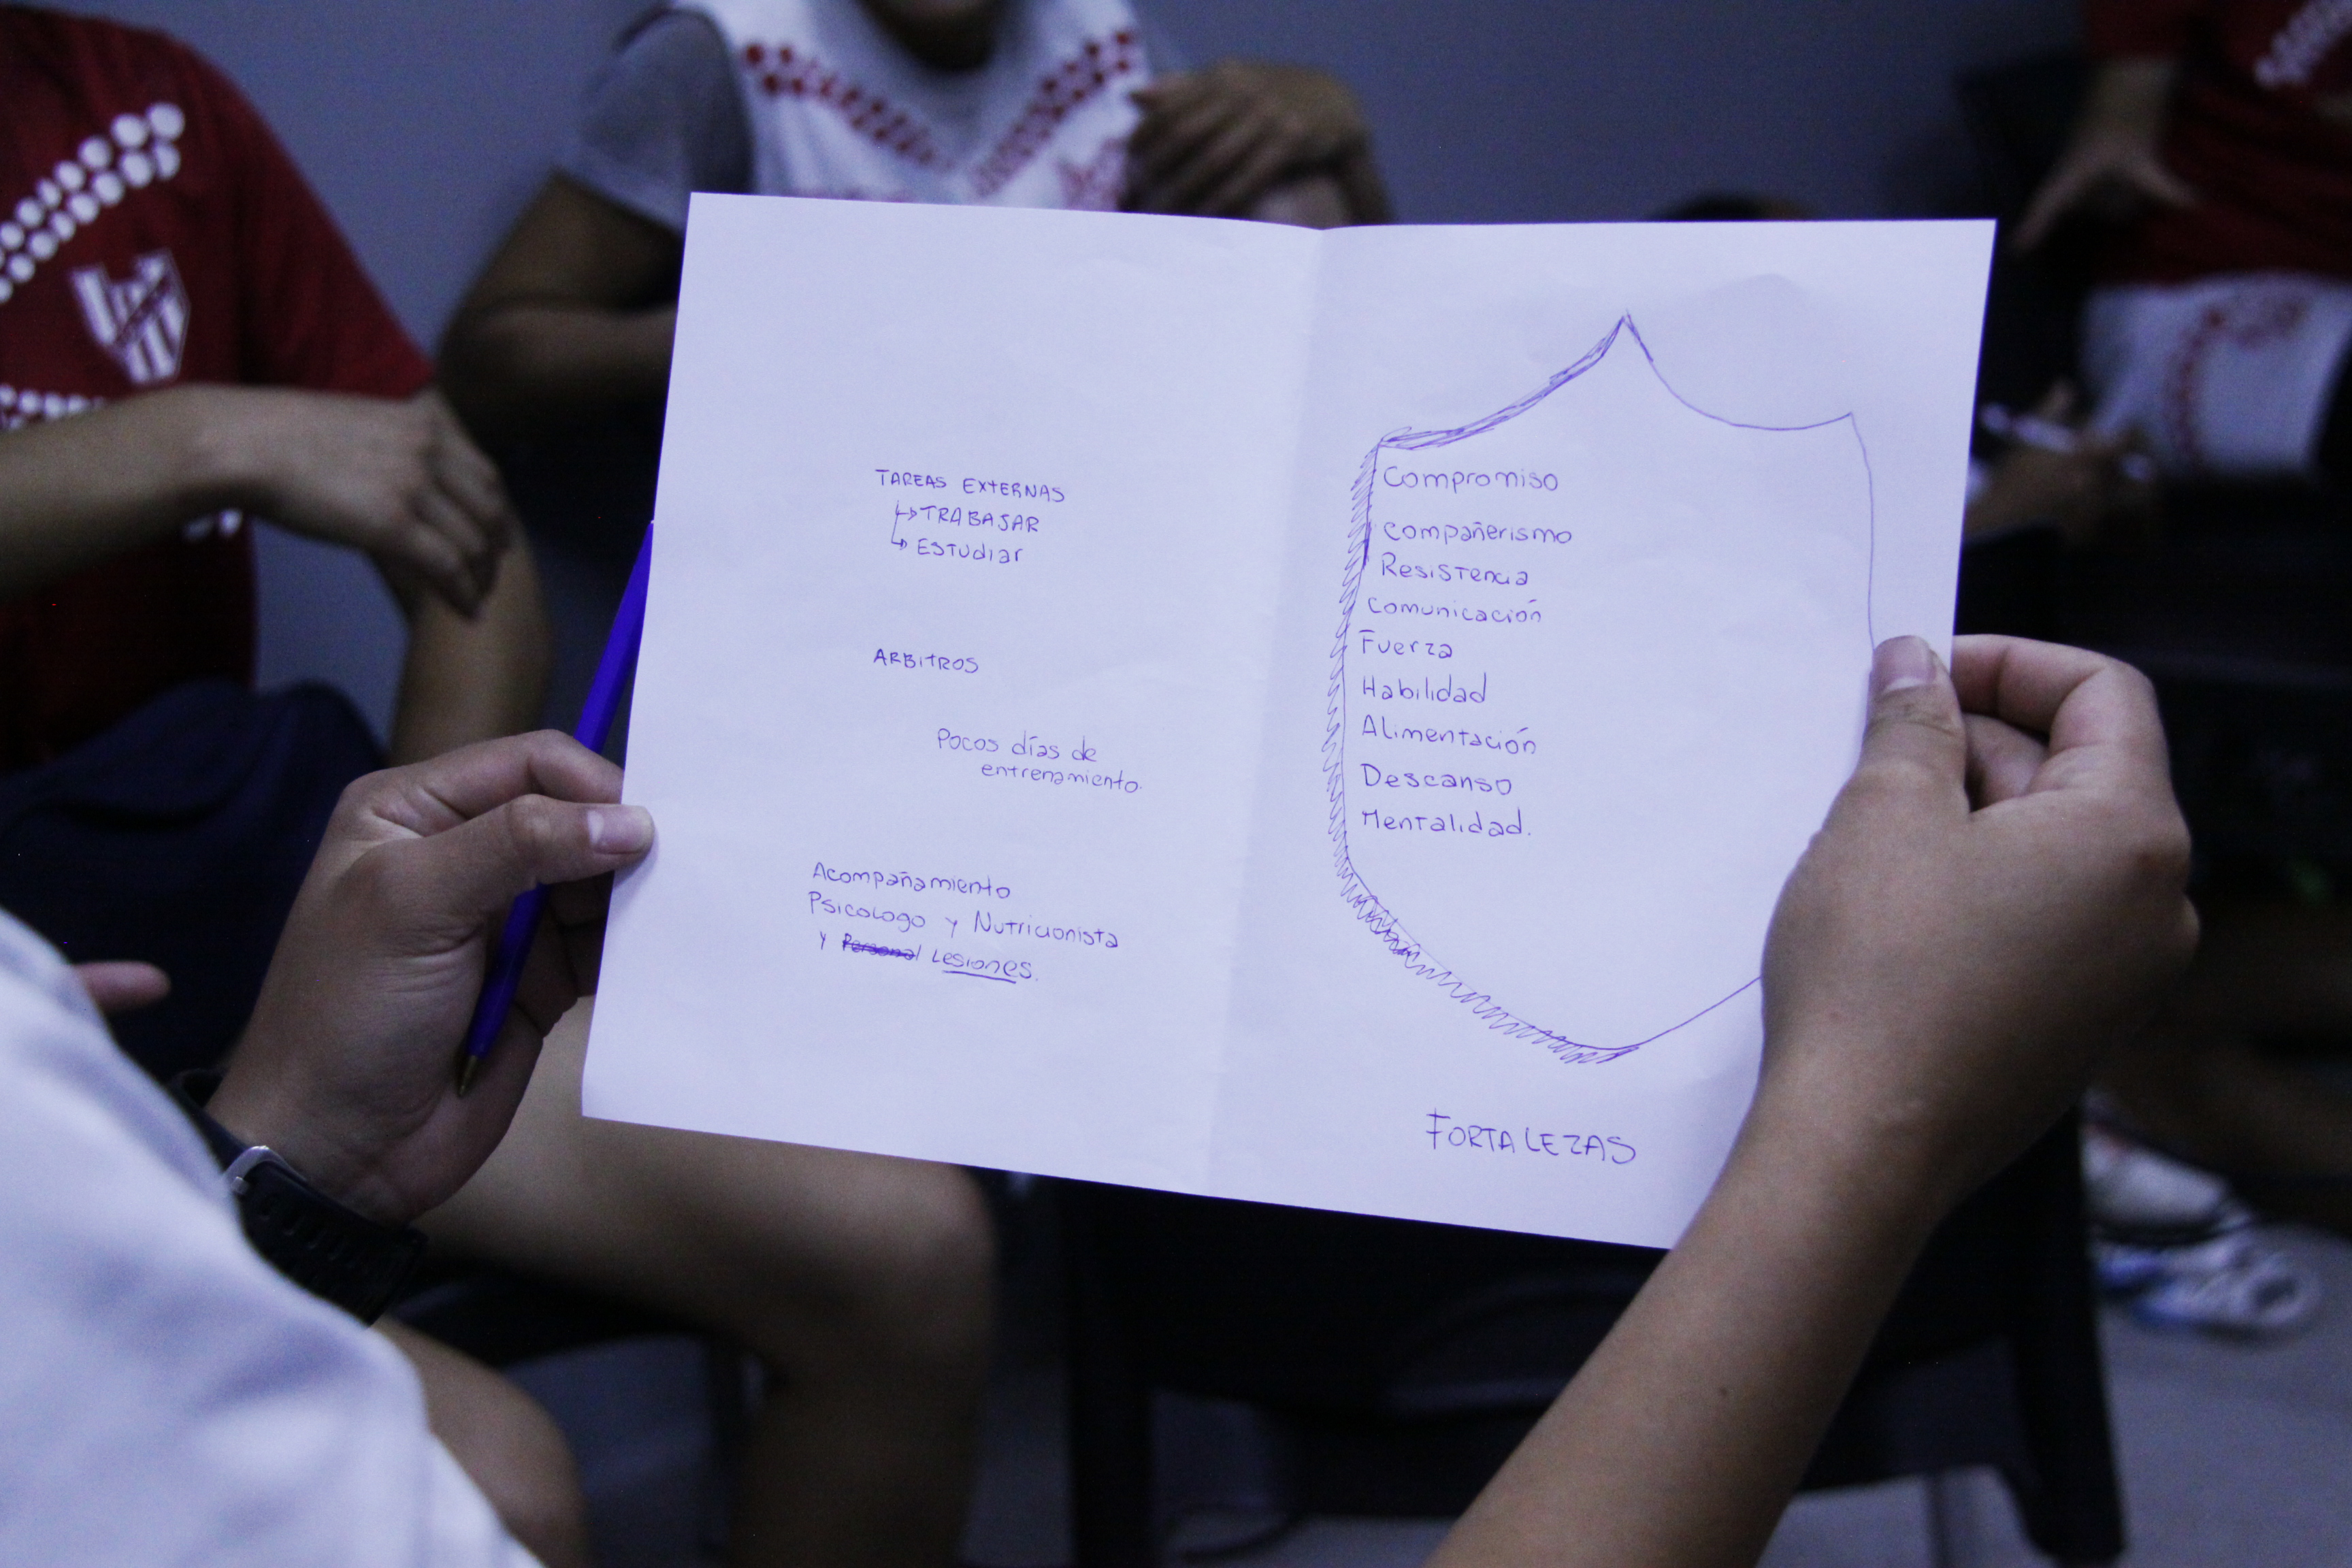 TAREAS EXTERNAS
↳ TRABAJAR
↳ ESTUDIAR
ARBITROS
Pocos días de
entrenamiento.
Acompañamiento
Psicologo y Nutricionista
y Personal Lesiones.
Compromiso
Compañerismo
Resistencia
Comunicación
Fuerza
Habilidad
Alimentación
Descanso
Mentalidad.
FORTALEZAS